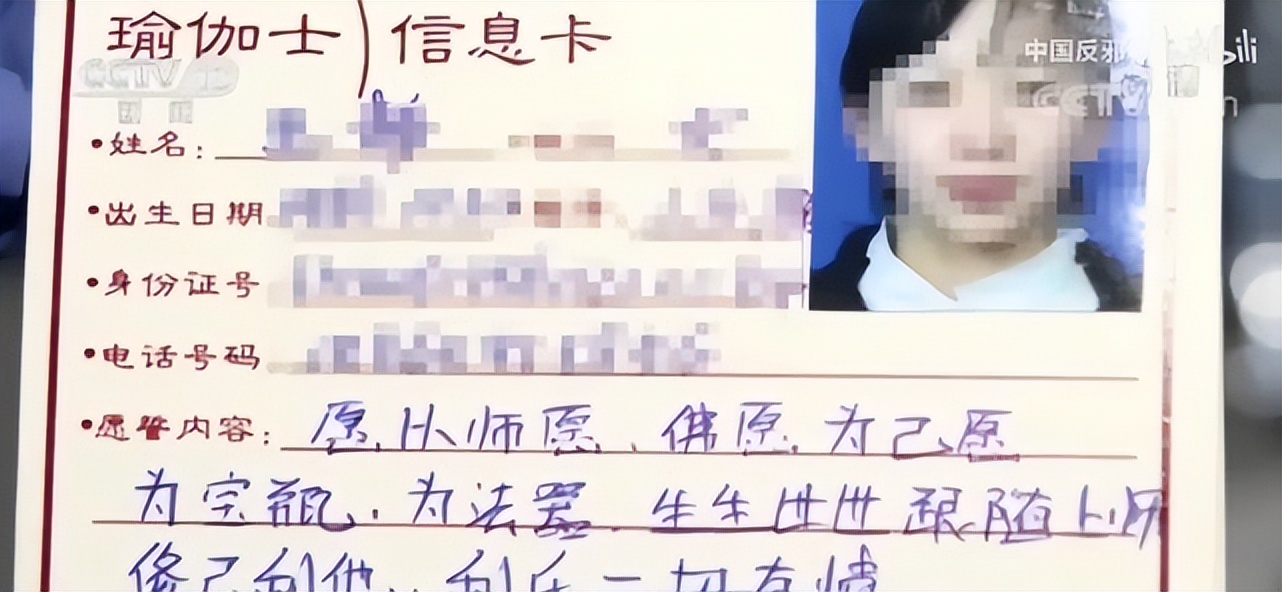 瑜伽士 信息卡
CCTV
中国反邪
CCTV
•姓名:
•出生日期
•身份证号
•电话号码
•愿誓内容: 愿以师愿、佛愿、为己愿
为宝瓶.为法器.生生世世跟随上师
修己利他..利乐一切有情